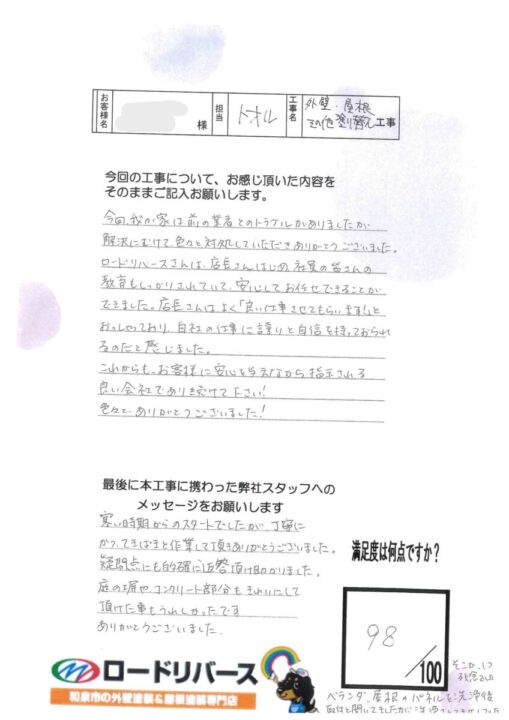 お客様名 様 担当 トオル 工事名 外壁・屋根
その他塗り替え工事
今回の工事について、お感じ頂いた内容を
そのままご記入お願いします。
今回、我が家は前の業者とのトラブルがありましたが
解決にむけて色々と対処していただきありがとうございました。
ロードリバースさんは、店長さんはじめ、社員の皆さんの
教育もしっかりされていて、安心してお任せできることが
できました。店長さんはよく「良い仕事させてもらいます!」と
おっしゃっており、自社の仕事に誇りと自信を持っておられ
るのだと感じました。
これからも、お客様に安心を与えながら指示される
良い会社であり続けて下さい!
色々と、ありがとうございました!
最後に本工事に携わった弊社スタッフへの
メッセージをお願いします
寒い時期からのスタートでしたが、丁寧に
かつ、てきぱきと作業して頂きありがとうございました。
疑問点にも的確に返答頂け助かりました。
庭の塀や、コンクリート部分もきれいにして
頂けた事もうれしかったです
ありがとうございました。
満足度は何点ですか?
98
/100
ロードリバース
和泉市の外壁塗装&屋根塗装専門店
そこが、1つ
残念でした
ベランダ、屋根のパネルを洗浄後
取付と聞いてましたが